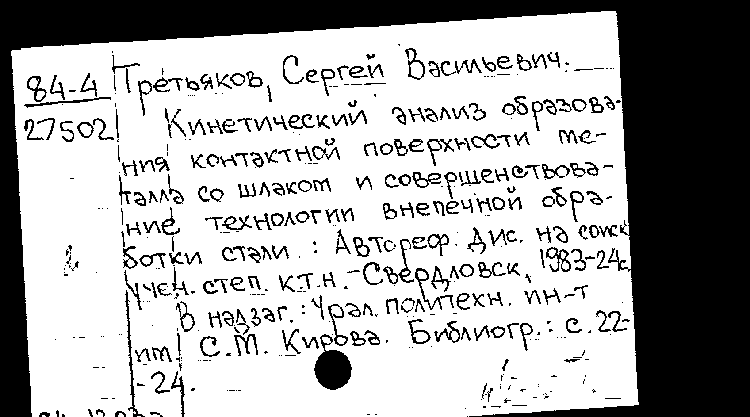 84-4
27502
Третьяков, Сергей Васильевич.
Кинетический анализ образова-
ния контактной поверхности ме-
талла со шлаком и совершенствова-
ние технологии внепечной обра-
ботки стали: Автореф. дис. на соиск
учен. степ. к.т.н. - Свердловск, 1983-24с.
В надзаг.: Урал. политехн. ин-т
им. С.М. Кирова. Библиогр.: с. 22-
-24.